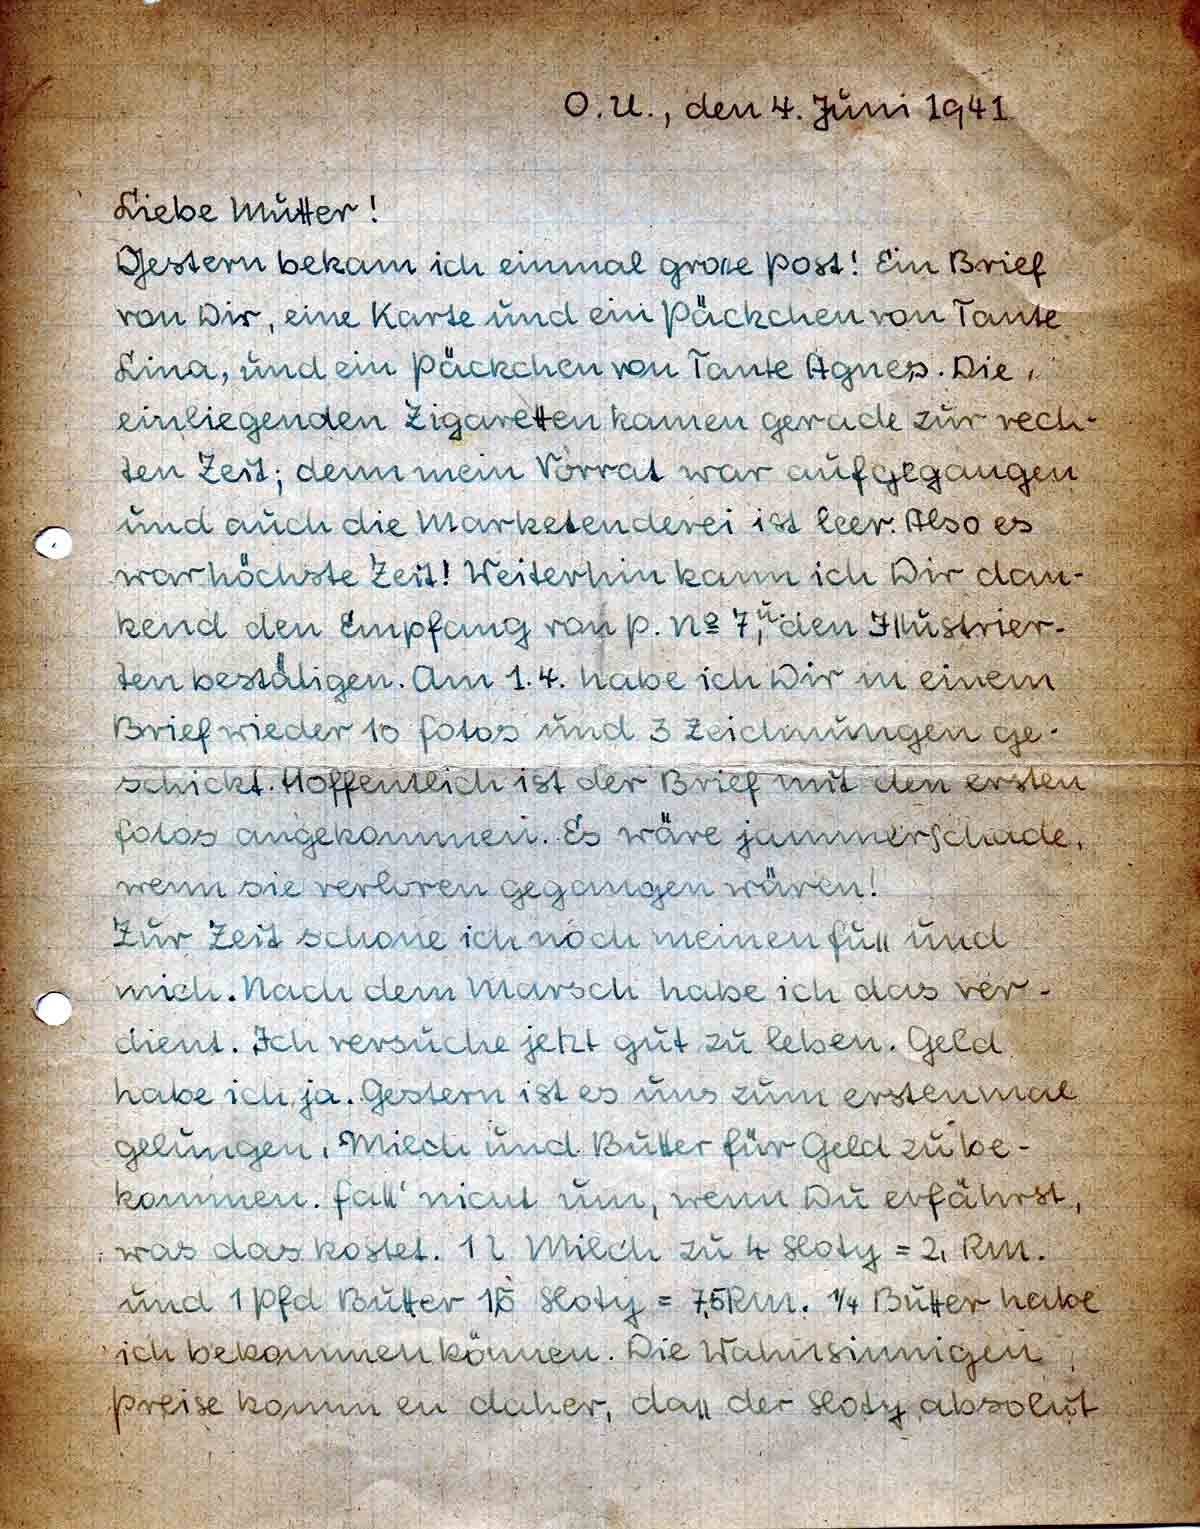 O.U., den 4. Juni 1941
Liebe Mutter!
Gestern bekam ich einmal grosse Post! Ein Brief
von Dir, eine Karte und ein Päckchen von Tante
Lina, und ein Päckchen von Tante Agnes. Die
einliegenden Zigaretten kamen gerade zur rech-
ten Zeit; denn mein Vorrat war aufgegangen
und auch die Marketenderei ist leer. Also es
war höchste Zeit! Weiterhin kann ich Dir dan-
kend den Empfang von P. № 7, u. den Illustrier-
ten bestätigen. Am 1.4. habe ich Dir in einem
Brief wieder 10 Fotos und 3 Zeichnungen ge-
schickt. Hoffentlich ist der Brief mit den ersten
Fotos angekommen. Es wäre jammerschade,
wenn sie verloren gegangen wären!
Zur Zeit schone ich noch meinen Fuß und
mich. Nach dem Marsch habe ich das ver-
dient. Ich versuche jetzt gut zu leben. Geld
habe ich ja. Gestern ist es uns zum erstenmal
gelungen, Milch und Butter für Geld zu be-
kommen. Fall' nicht um, wenn Du erfährst,
was das kostet. 1 l Milch zu 4 Sloty = 2, RM.
und 1 Pfd Butter 15 Sloty = 7,5 RM. 1/4 Butter habe
ich bekommen können. Die Wahnsinnigen
Preise kommen daher, daß der Sloty absolut